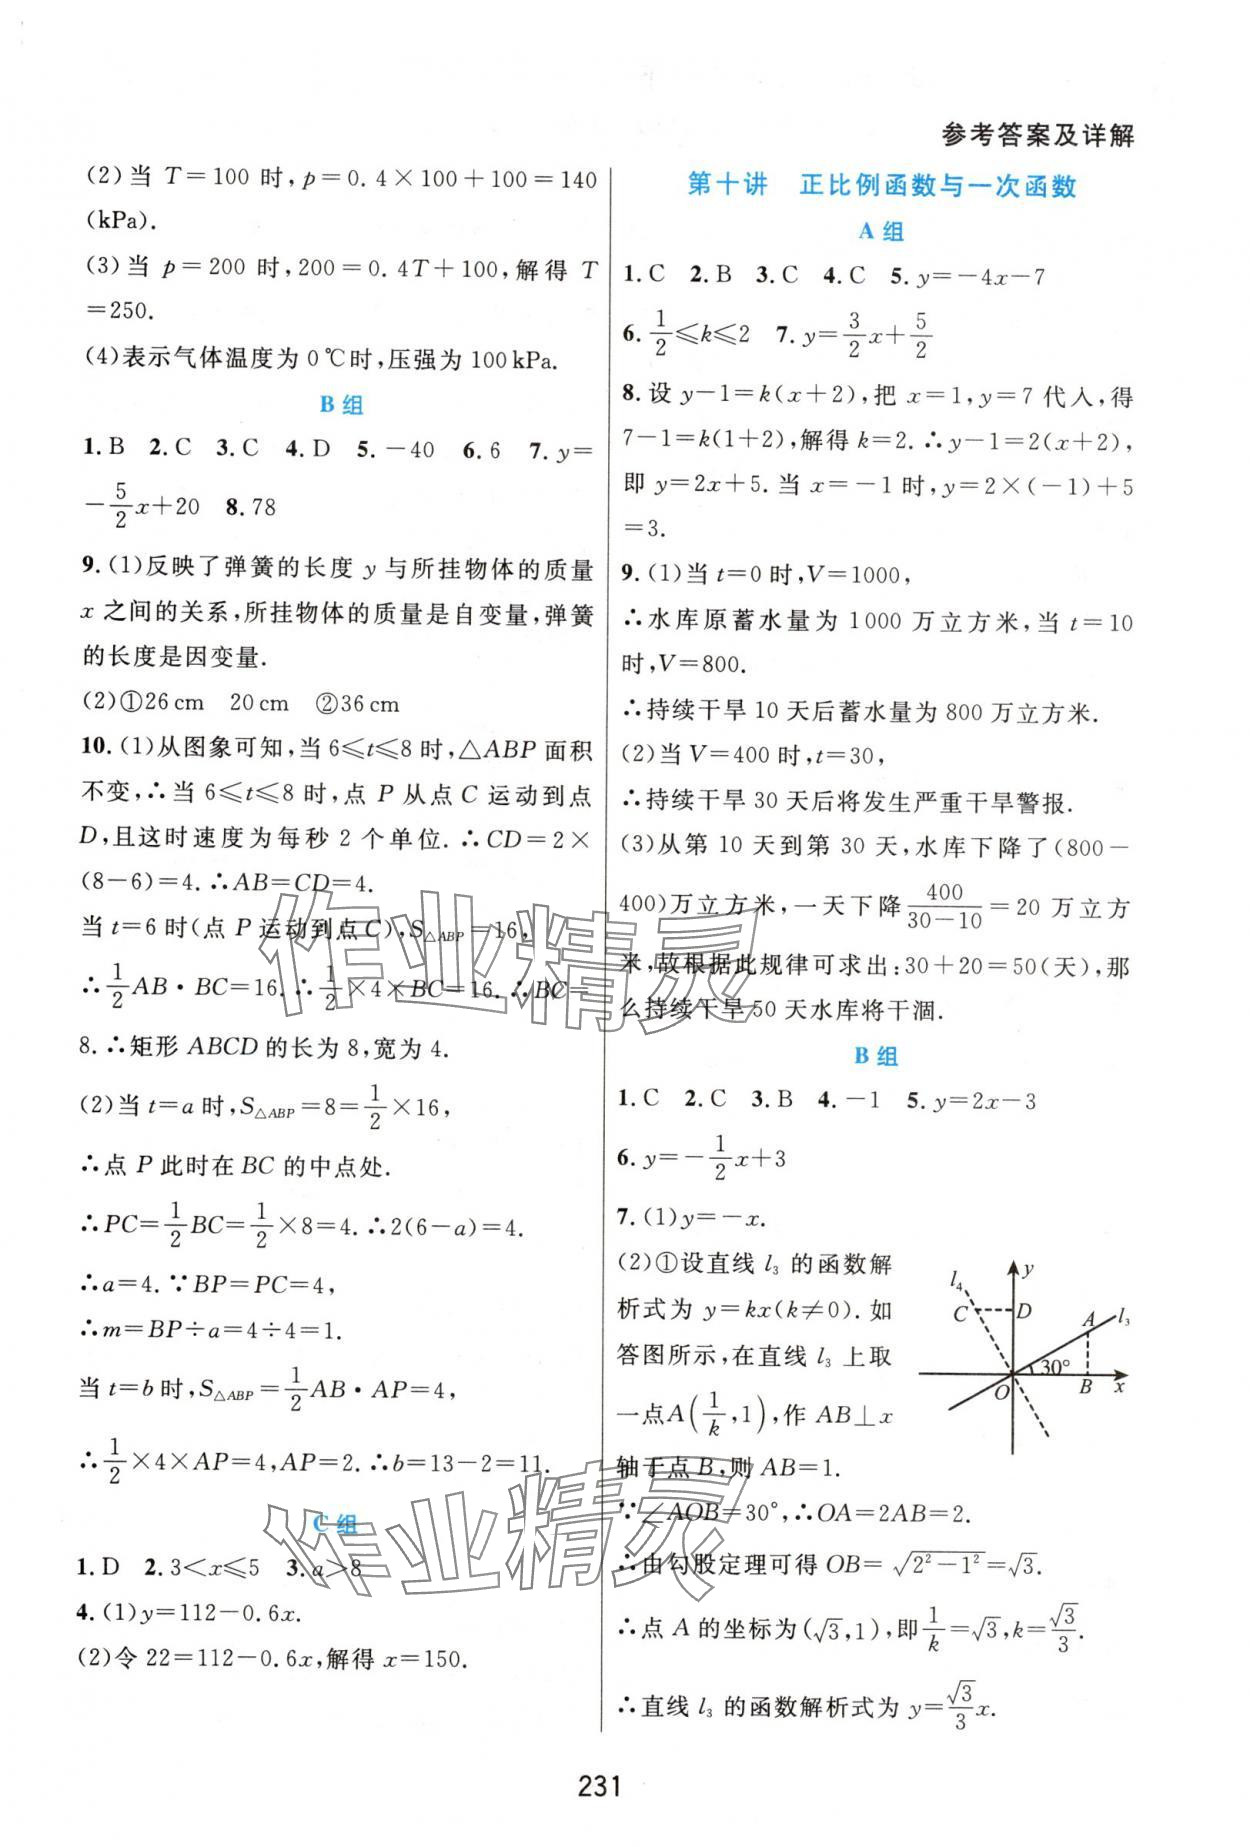 参考答案及详解
(2)当 T=100 时,p=0.4×100+100=140
(kPa).
(3)当 p=200 时,200=0.4T+100,解得 T
=250.
(4)表示气体温度为 0 ℃时,压强为 100 kPa.
B 组
1. B 2. C 3. C 4. D 5. -40 6. 6 7. y=
-5/2x+20 8. 78
9. (1)反映了弹簧的长度 y 与所挂物体的质量
x 之间的关系,所挂物体的质量是自变量,弹簧
的长度是因变量.
(2)①26 cm 20 cm ②36 cm
10. (1)从图象可知,当 6≤t≤8 时,△ABP 面积
不变,∴当 6≤t≤8 时,点 P 从点 C 运动到点
D,且这时速度为每秒 2 个单位.∴CD=2×
(8-6)=4.∴AB=CD=4.
当 t=6 时(点 P 运动到点 C),S△ABP=16,
∴1/2AB·BC=16.∴1/2×4×BC=16.∴BC=
8.∴矩形 ABCD 的长为 8,宽为 4.
(2)当 t=a 时,S△ABP=8=1/2×16,
∴点 P 此时在 BC 的中点处.
∴PC=1/2BC=1/2×8=4.∴2(6-a)=4.
∴a=4.∵BP=PC=4,
∴m=BP÷a=4÷4=1.
当 t=b 时,S△ABP=1/2AB·AP=4,
∴1/2×4×AP=4,AP=2.∴b=13-2=11.
C 组
1. D 2. 3<x≤5 3. a>8
4. (1)y=112-0.6x.
(2)令 22=112-0.6x,解得 x=150.
第十讲 正比例函数与一次函数
A 组
1. C 2. B 3. C 4. C 5. y=-4x-7
6. 1/2≤k≤2 7. y=3/2x+5/2
8. 设 y-1=k(x+2),把 x=1,y=7 代入,得
7-1=k(1+2),解得 k=2.∴y-1=2(x+2),
即 y=2x+5.当 x=-1 时,y=2×(-1)+5
=3.
9. (1)当 t=0 时,V=1000,
∴水库原蓄水量为 1000 万立方米,当 t=10
时,V=800.
∴持续干旱 10 天后蓄水量为 800 万立方米.
(2)当 V=400 时,t=30,
∴持续干旱 30 天后将发生严重干旱警报.
(3)从第 10 天到第 30 天,水库下降了(800-
400)万立方米,一天下降400/(30-10)=20 万立方
米,故根据此规律可求出:30+20=50(天),那
么持续干旱 50 天水库将干涸.
B 组
1. C 2. C 3. B 4. -1 5. y=2x-3
6. y=-1/2x+3
7. (1)y=-x.
(2)①设直线 l₃ 的函数解
析式为 y=kx(k≠0).如
答图所示,在直线 l₃ 上取
一点A(1/k,1),作 AB⊥x
轴于点 B,则 AB=1.
l₄ y
C D A l₃
30°
O B x
∵∠AOB=30°,∴OA=2AB=2.
∴由勾股定理可得 OB=√(2²-1²)=√3.
∴点 A 的坐标为(√3,1),即1/k=√3,k=√3/3.
∴直线 l₃ 的函数解析式为 y=√3/3x.
作业精灵
作业精灵
231